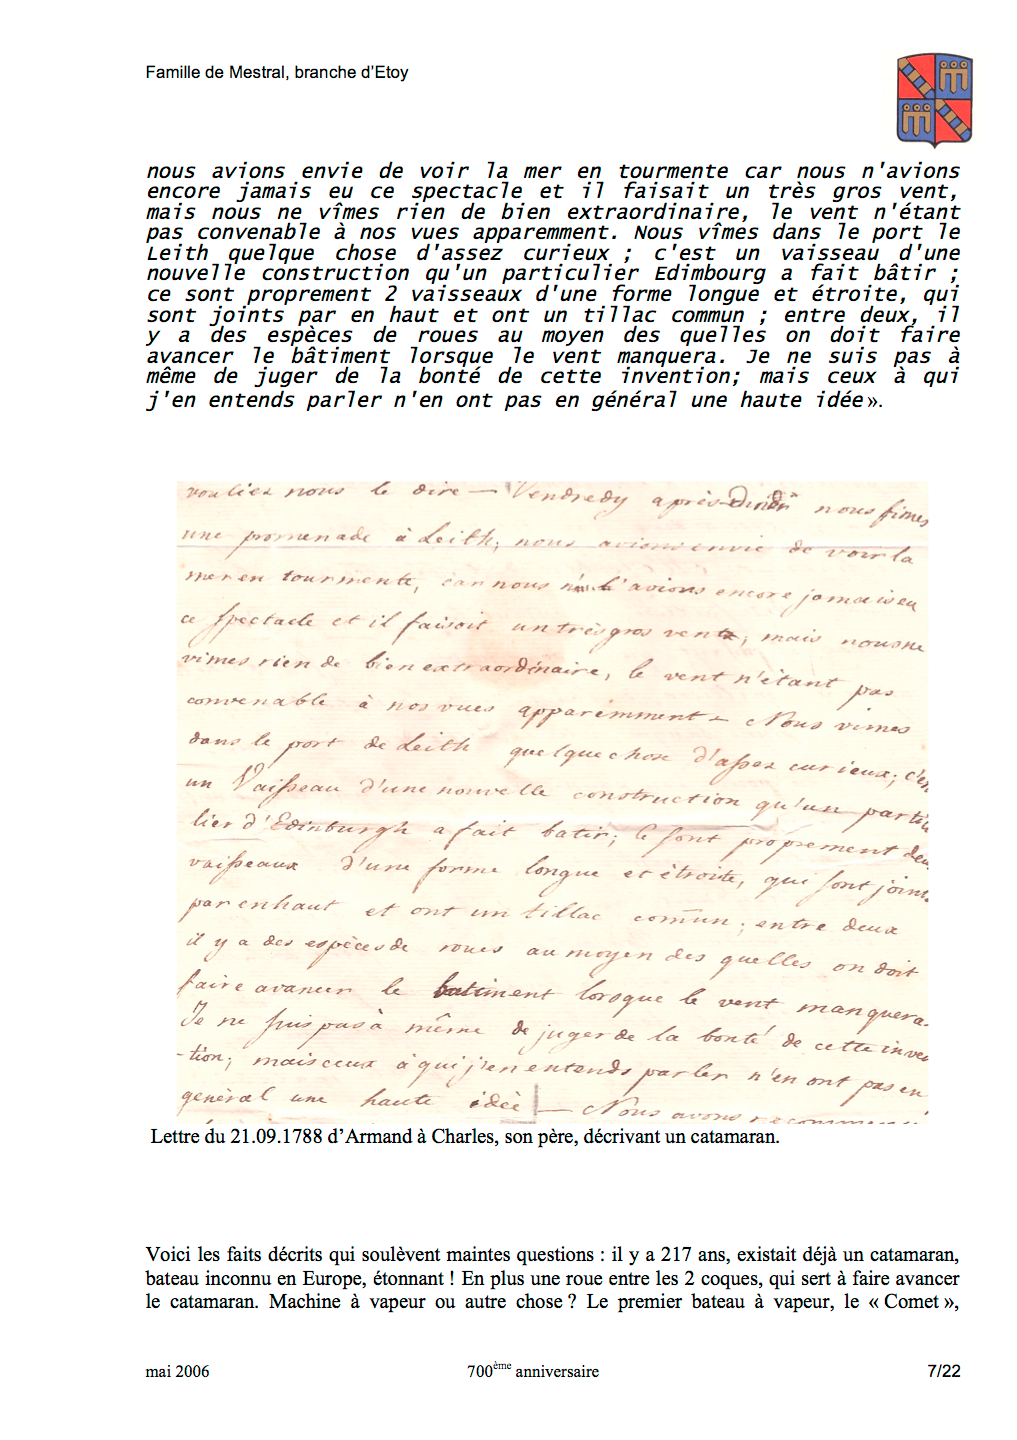 Famille de Mestral, branche d'Etoy
nous avions envie de voir la mer en tourmente car nous n'avions
encore jamais eu ce spectacle et il faisait un très gros vent,
mais nous ne vîmes rien de bien extraordinaire, le vent n'étant
pas convenable à nos vues apparemment. Nous vîmes dans le port le
Leith quelque chose d'assez curieux ; c'est un vaisseau d'une
nouvelle construction qu'un particulier Edimbourg a fait bâtir ;
ce sont proprement 2 vaisseaux d'une forme longue et étroite, qui
sont joints par en haut et ont un tillac commun ; entre deux, il
y a des espèces de roues au moyen des quelles on doit faire
avancer le bâtiment lorsque le vent manquera. Je ne suis pas à
même de juger de la bonté de cette invention; mais ceux à qui
j'en entends parler n'en ont pas en général une haute idée ».
vouliez nous le dire — Vendredy après nous fimes
une promenade à Leith, nous avions envie de voir la
mer en tourmente, car nous l'avions encore jamais eu
ce spectacle et il faisoit un très gros vent, mais nous ne
vimes rien de bien extraordinaire, le vent n'étant pas
convenable à nos vues apparemment — Nous vimes
dans le port de Leith quelque chose d'assez curieux; c'en
un Vaisseau d'une nouvelle construction qu'un particu
lier d'Edinburgh a fait batir; Ce sont proprement deu
vaisseaux d'une forme longue et étroite, qui sont joint
par en haut et ont un tillac comun; entre deux
il y a des espèces de roues au moyen des quelles on doit
faire avancer le batiment lorsque le vent manquera.
Je ne suis pas à même de juger de la bonté de cette inven
-tion; mais ceux à qui j'en entends parler n'en ont pas en
général une haute idée — Nous avons
Lettre du 21.09.1788 d'Armand à Charles, son père, décrivant un catamaran.
Voici les faits décrits qui soulèvent maintes questions : il y a 217 ans, existait déjà un catamaran,
bateau inconnu en Europe, étonnant ! En plus une roue entre les 2 coques, qui sert à faire avancer
le catamaran. Machine à vapeur ou autre chose ? Le premier bateau à vapeur, le « Comet »,
mai 2006 700ème anniversaire 7/22